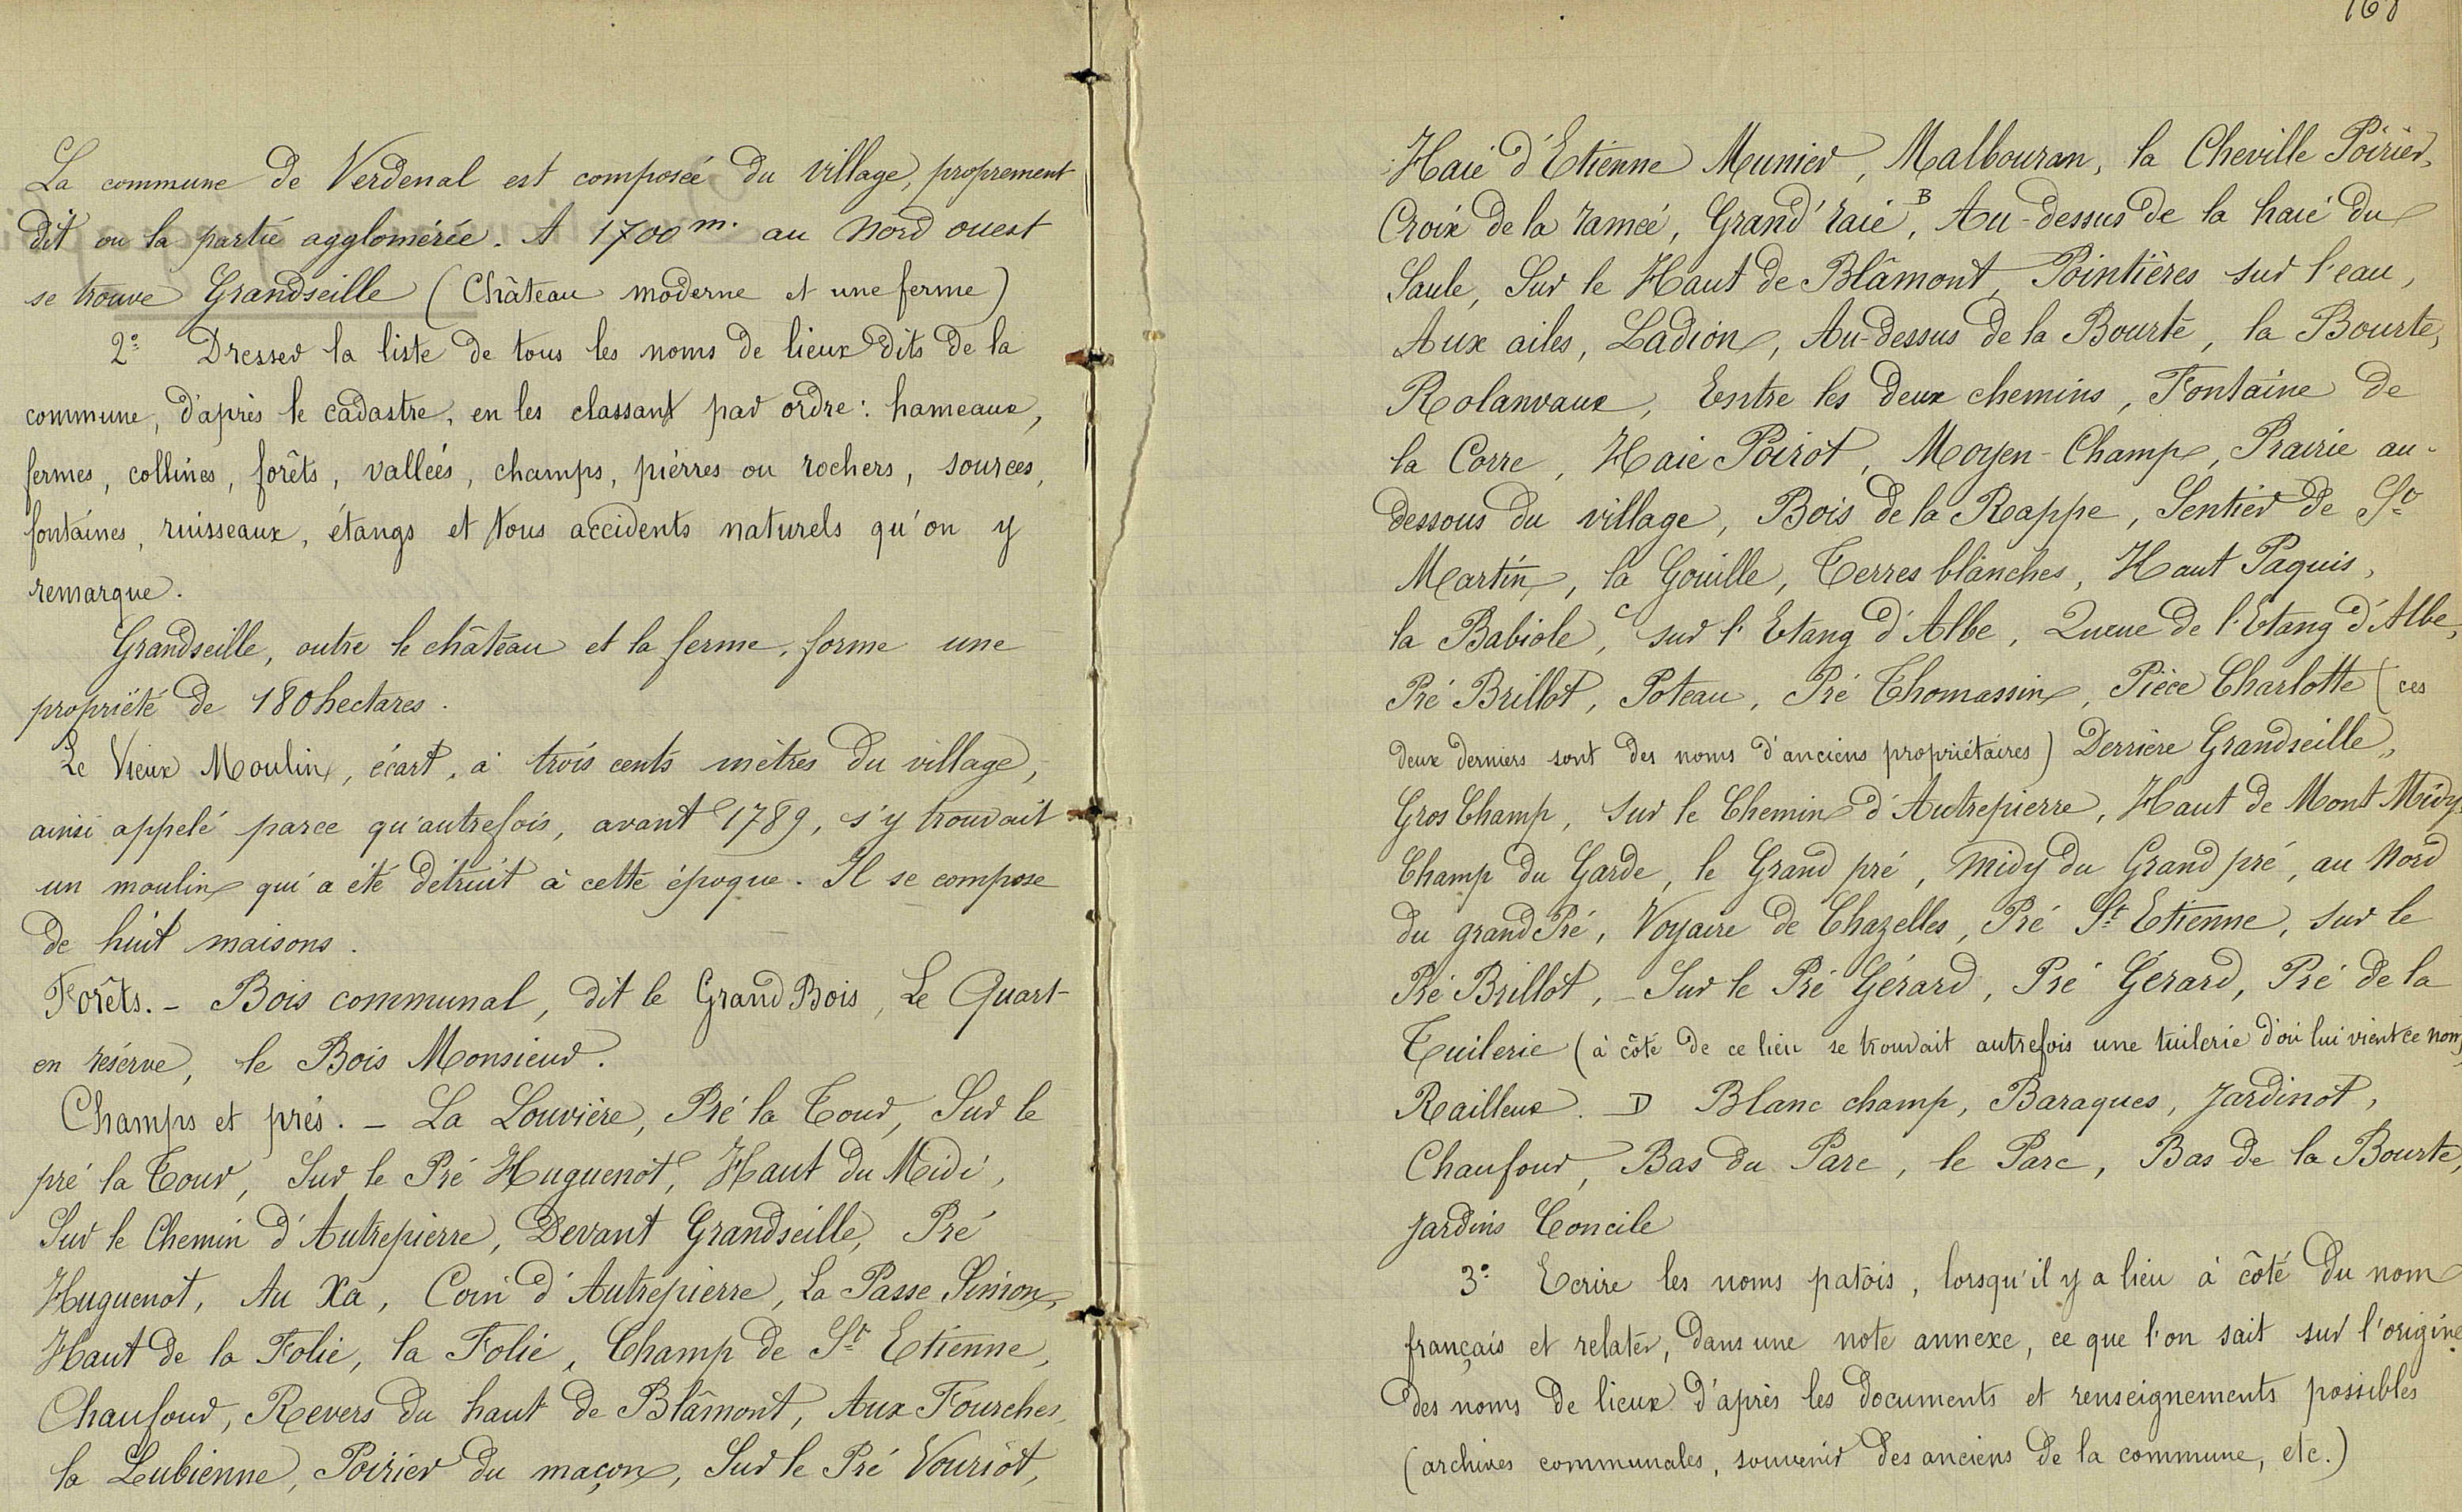 La commune de Verdenal est composée du village, proprement
dit ou la partie agglomérée. A 1700 m. au Nord ouest
se trouve Grandseille (Château moderne et une ferme)
2º Dresser la liste de tous les noms de lieux dits de la
commune, d'après le cadastre, en les classant par ordre : hameaux,
fermes, collines, forêts, vallées, champs, pierres ou rochers, sources,
fontaines, ruisseaux, étangs et tous accidents naturels qu'on y
remarque.
Grandseille, outre le château et la ferme, forme une
propriété de 180 hectares.
Le Vieux Moulin, écart, à trois cents mètres du village,
ainsi appelé parce qu'autrefois, avant 1789, s'y trouvait
un moulin qui a été détruit à cette époque. Il se compose
de huit maisons.
Forêts. - Bois communal, dit le Grand Bois, Le Quart-
en réserve, le Bois Monsieur.
Champs et prés. - La Louvière, Pré la Tour, Sur le
pré la Tour, Sur le Pré Huguenot, Haut du Midi,
Sur le Chemin d'Autrepierre, Devant Grandseille, Pré
Huguenot, Au Xa, Coin d'Autrepierre, La Passe Simon,
Haut de la Folie, la Folie, Champ de St Etienne,
Chaufour, Revers du haut de Blâmont, Aux Fourches,
la Leubienne, Poirier du maçon, Sur le Pré Vouriot,
168
Haie d'Etienne Munier, Malbouran, la Cheville Poirier,
Croix de la ramée, Grand' raie B, Au-dessus de la haie du
Saule, Sur le Haut de Blâmont, Pointières sur l'eau,
Aux ailes, Ladion, Au-dessus de la Bourte, la Bourte,
Rolanvaux, Entre les deux chemins, Fontaine de
la Corre, Haie Poirot, Moyen-Champ, Prairie au-
dessous du village, Bois de la Rappe, Sentier de St
Martin, la Gouille, Terres blanches, Haut Paquis,
la Babiole, C sur l'Etang d'Albe, Queue de l'Etang d'Albe,
Pré Brillot, Poteau, Pré Thomassin, Pièce Charlotte (ces
deux derniers sont des noms d'anciens propriétaires) Derrière Grandseille,
Gros Champ, Sur le Chemin d'Autrepierre, Haut de Mont Midy,
Champ du Garde, le Grand pré, Midy du Grand pré, au Nord
du grand Pré, Voyaire de Chazelles, Pré St Etienne, sur le
Pré Brillot, - Sur le Pré Gérard, Pré Gérard, Pré de la
Tuilerie (à côté de ce lieu se trouvait autrefois une tuilerie d'où lui vient ce nom)
Railleux. D Blanc champ, Baraques, Jardinot,
Chaufour, Bas du Parc, le Parc, Bas de la Bourte,
Jardins Concile
3º Ecrire les noms patois, lorsqu'il y a lieu à côté du nom
français et relater, dans une note annexe, ce que l'on sait sur l'origine
des noms de lieux d'après les documents et renseignements possibles
(archives communales, souvenir des anciens de la commune, etc.)